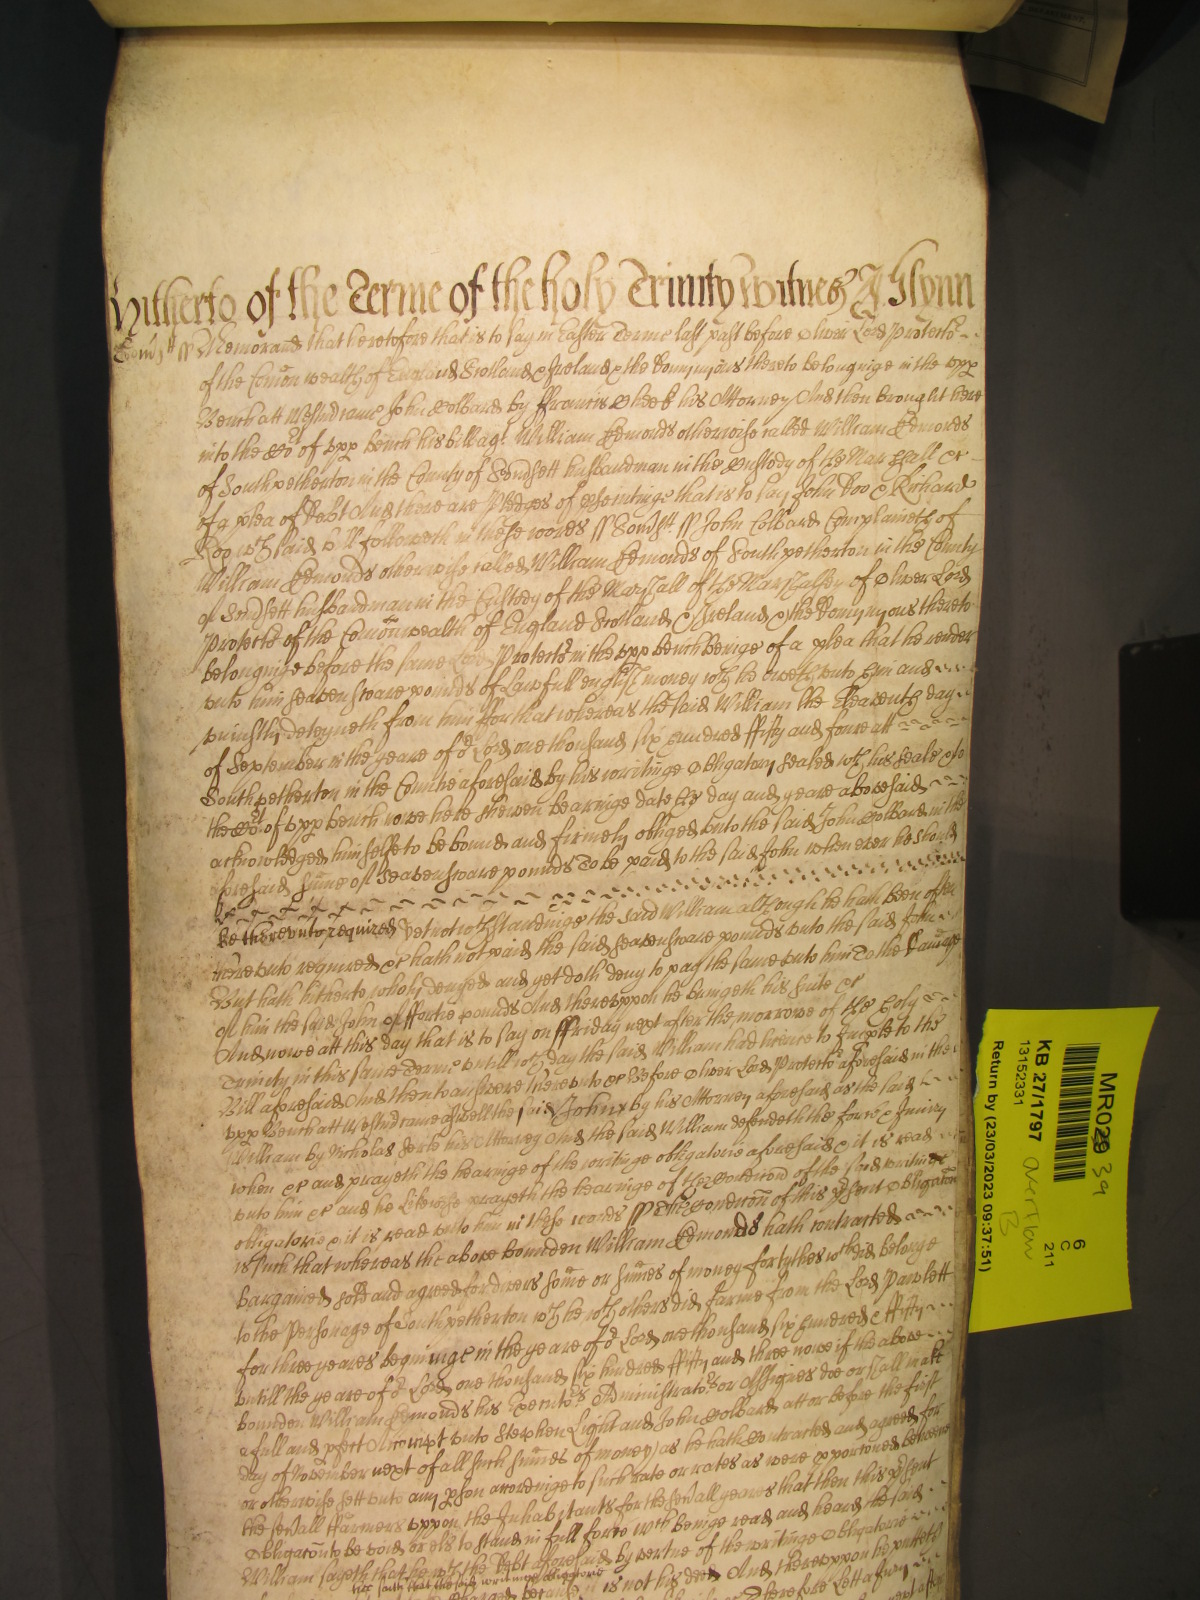 Hitherto of the Terme of the holy Trinity Witnes J Glynn
Somsett ss Memorand that heretofore that is to say in Easter Terme last past before Oliver Lord Protector
of the Comon wealth of England Scotland & Ireland & the Domynyons thereto belonginge in the upp
Bench att Westm came John Colbard by Francis Cheek his Attorney And then brought here
into the Cot of upp bench his bill agt William Edmonds otherwise called William Edmonds
of Southpetherton in the County of Somsett husbandman in the Custody of the Marshall &c
of a plea of Debt And there are Pledges of psecutinge that is to say John Doo & Richard
Roo wch said bill followeth in these words ss Somstt ss John Colbard Complaineth of
William Edmonds otherwise called William Edmonds of Southpetherton in the County
of Somsett husbandman in the Custody of the Marshall of the Marshalsey of Oliver Lord
Protector of the Comonwealth of England Scotland & Ireland & the Domynyons thereto
belonginge before the same Lord Protector in the upp bench beinge of a plea that he render
unto him seavenscore pounds of Lawfull english money wch he oweth unto him and
uniustly deteyneth from him For that whereas the said William the Eleaventh day
of September in the yeare of or Lord one thousand six hundred fifty and foure att
Southpetherton in the Countie aforesaid by his writinge Obligatory sealed wth his seale & to
the Cort of upp bench nowe here shewen bearinge date the day and yeare abovesaid
acknowledged himselfe to be bound and firmely obliged unto the said John Colbard in the
aforesaid sume of seavenscore pounds To be paid to the said John when ever he should
be
be thereunto required Yet notwthstandinge the said William although he hath been often
thereunto required &c hath not paid the said seavenscore pounds unto the said John
But hath hitherto wholy denyed and yet doth deny to pay the same unto him To the Damage
of him the said John of fortie pounds And thereuppon he bringeth his suite &c
And nowe att this day that is to say on Friday next after the morrowe of the holy
Trinity in this same Terme untill wch day the said William had licence to Imple to the
Bill aforesaid And then to answere thereunto &c Before Oliver Lord Protector aforesaid in the
upp Bench att Westm came aswell the said John by his Attorney aforesaid as the said
William by Nicholas his Attorney And the said William defendeth the force & Iniury
when &c and prayeth the hearinge of the writinge obligatorie aforesaid & it is read
unto him &c and he likewise prayeth the hearinge of the Condicon of the said writinge
obligatorie & it is read unto him in these words ss The Condicon of this psent Obligaton
is such that whereas the above bounden William Edmonds hath contracted
bargained sold and agreed for divers some or sumes of money for tythes wch did belonge
to the Personage of Southpetherton wch he wth others did farme from the Lord Pawlett
for three yeares beginninge in the yeare of or Lord one thousand six hundred & fifty
untill the yeare of or Lord one thousand six hundred fifty and three nowe if the above
bounden William Edmonds his Executors Administrators or Assignes doe or shall make
a full and pfect Accompt unto Stephen Light and John Colbard att or before the first
day of November next of all such sumes of money as he hath Contracted and agreed for
or otherwise sett unto any pson accordinge to such rate or rates as were apportined betweene
the sevall Farmers uppon the Inhabitants for the sevall yeares that then this psent
Obligaton to be void or els to stand in full force wch beinge read and heard the said
William sayeth that he wth the Debt aforesaid by vertue of the writinge Obligatorie
hee saith that the said writinge obligatorie
is not his deed And thereuppon he putteth
Therefore Lett a Jury
MR029 39
KB 27/1797
13152331
6
C
211
overflow
B
Return by (23/03/2023 09:37:51)